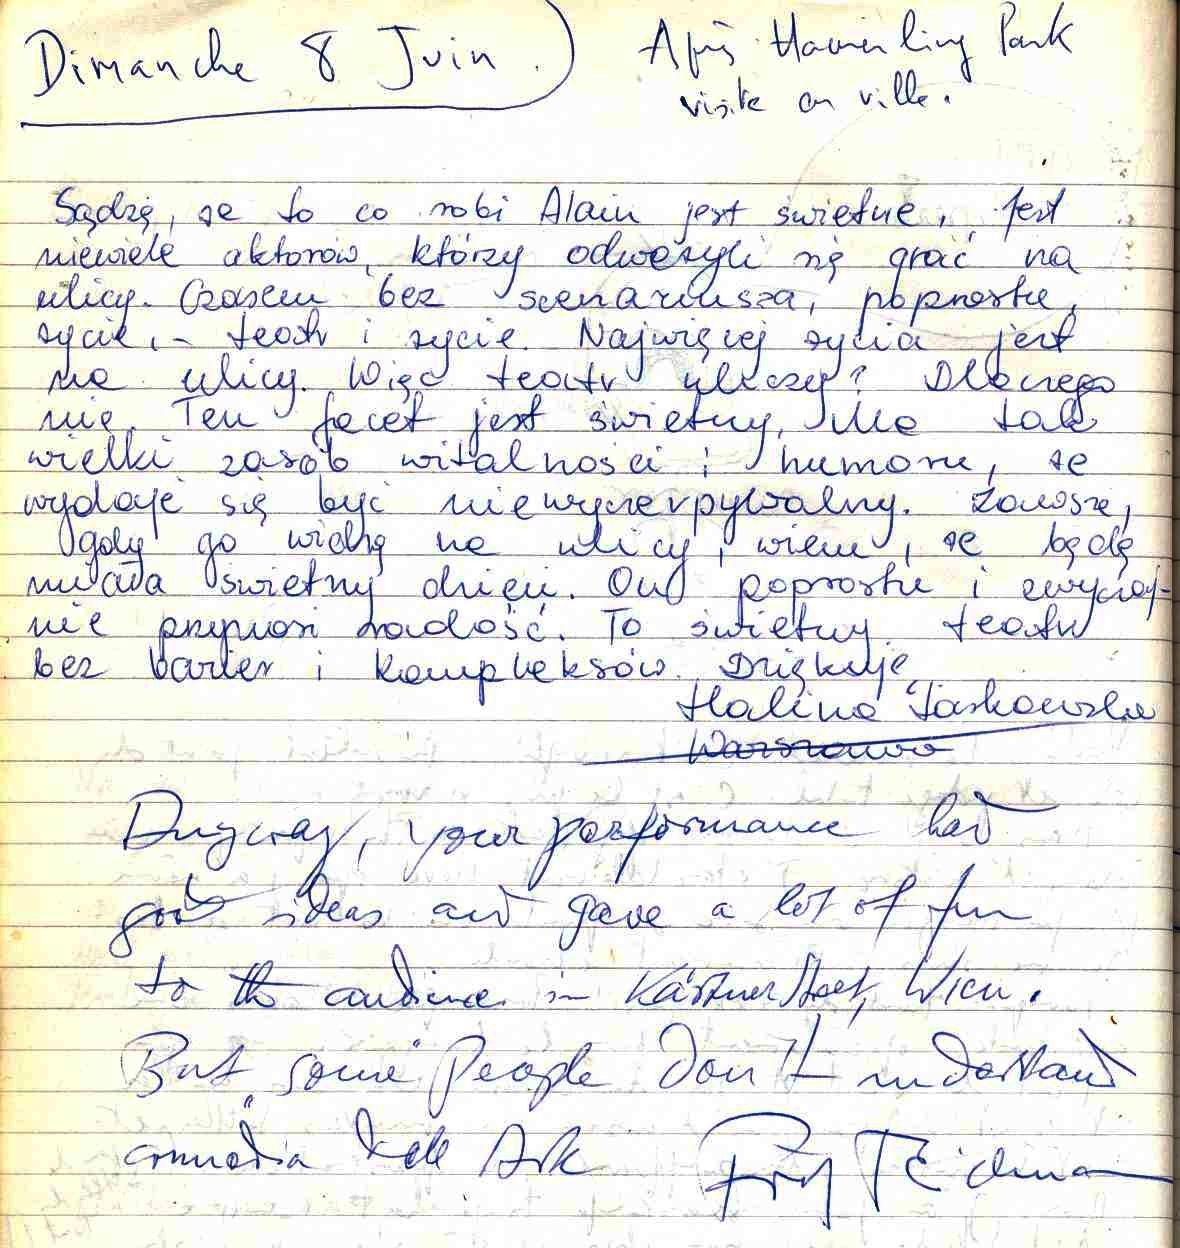 Dimanche 8 Juin.
Après Hamerling Park
visite en ville.
Sądzę, że to co robi Alain jest świetne, jest
niewiele aktorów, którzy odważyli się grać na
ulicy. Czasem bez scenariusza, poprostu,
życie, - teatr i życie. Najwięcej życia jest
na ulicy. Więc teatr uliczy? Dlaczego
nie. Ten facet jest świetny. Ma tak
wielki zasób witalności i humoru, że
wydaje się być niewyczerpywalny. Zawsze,
gdy go widzę na ulicy, wiem, że będę
miała świetny dzień. On poprostu i zwyczaj-
nie przynosi radość. To świetny teatr
bez barier i kompleksów. Dziękuję
Halina Jaskowska
Warszawa
Anyway, your performance had
good ideas and gave a lot of fun
to the audience in Kärtnerstreet, Wien.
But some People Don't understand
comedia dell Arte